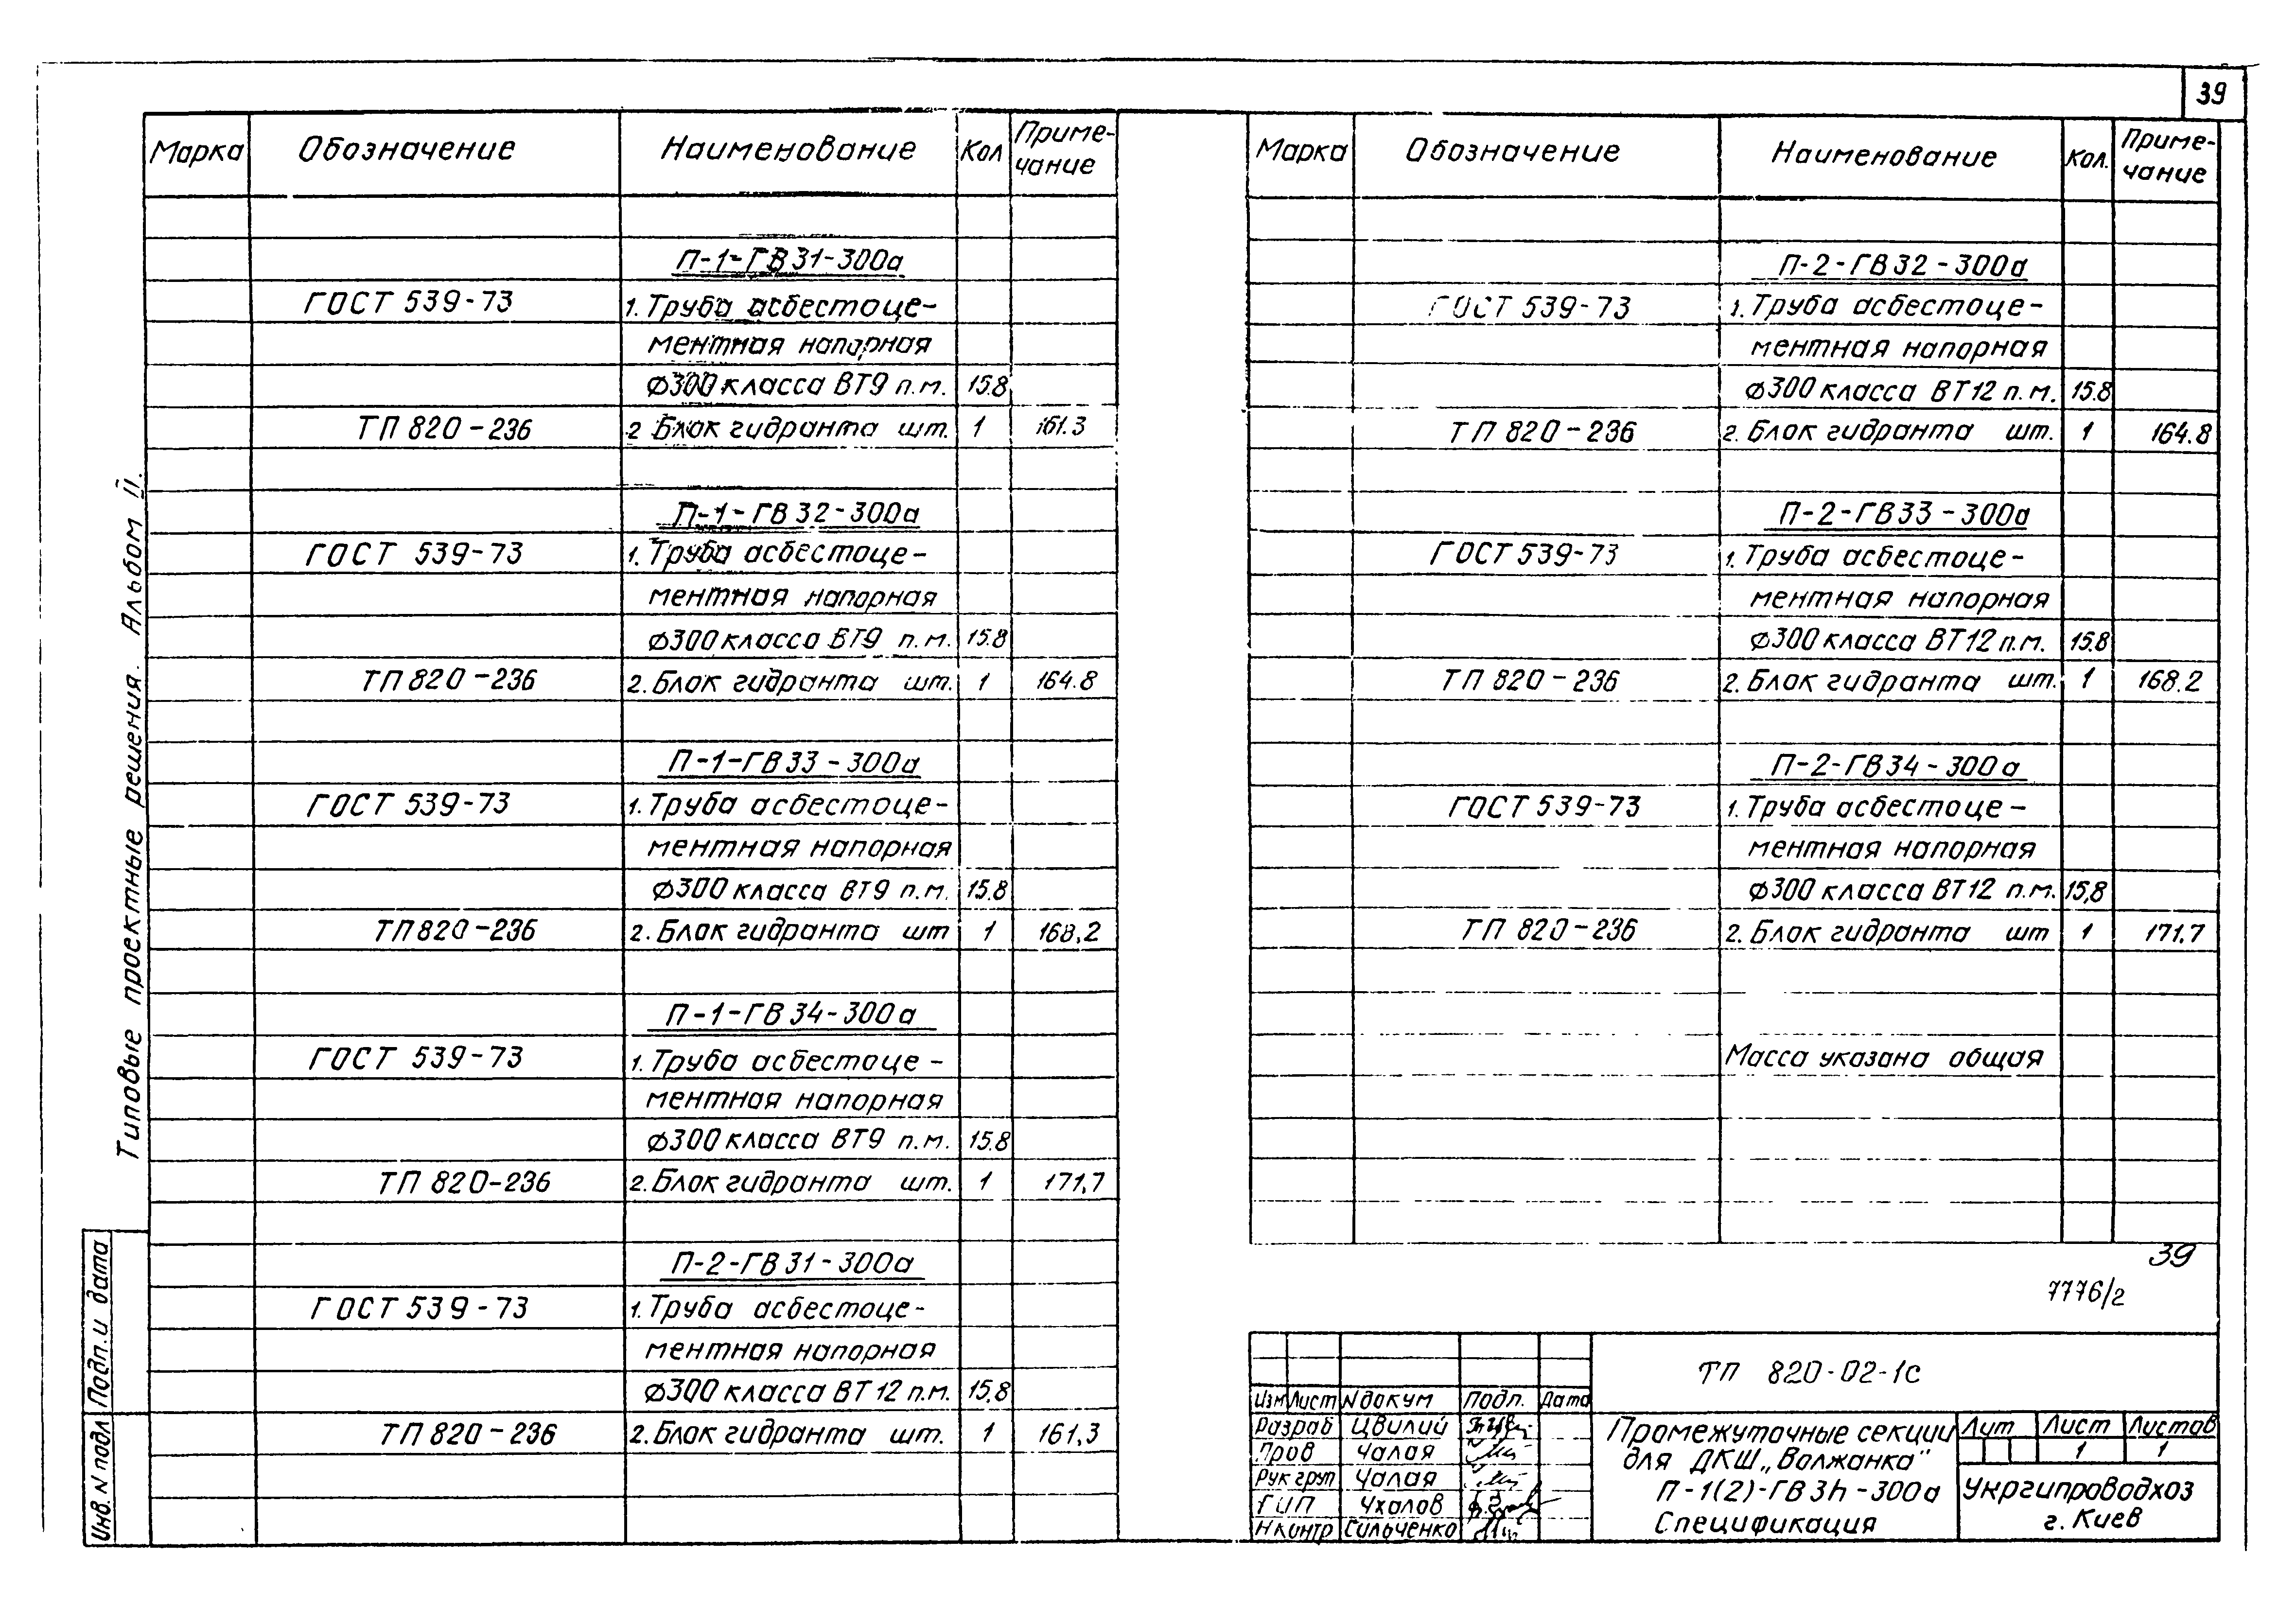 39
Марка Обозначение Наименование Кол Приме-
чание
П-1-ГВ31-300а
ГОСТ 539-73 1. Труба асбестоце-
ментная напорная
ф300 класса ВТ9 п.м. 15.8
ТП 820-236 2 Блок гидранта шт. 1 161.3
П-1-ГВ32-300а
ГОСТ 539-73 1. Труба асбестоце-
ментная напорная
ф300 класса ВТ9 п.м. 15.8
ТП 820-236 2. Блок гидранта шт. 1 164.8
П-1-ГВ33-300а
ГОСТ 539-73 1. Труба асбестоце-
ментная напорная
ф300 класса ВТ9 п.м. 15.8
ТП 820-236 2. Блок гидранта шт 1 168,2
П-1-ГВ34-300а
ГОСТ 539-73 1. Труба асбестоце-
ментная напорная
ф300 класса ВТ9 п.м. 15.8
ТП 820-236 2. Блок гидранта шт. 1 171,7
П-2-ГВ31-300а
ГОСТ 539-73 1. Труба асбестоце-
ментная напорная
ф300 класса ВТ12 п.м. 15,8
ТП 820-236 2. Блок гидранта шт. 1 161,3
Марка Обозначение Наименование Кол. Приме-
чание
П-2-ГВ32-300а
ГОСТ 539-73 1. Труба асбестоце-
ментная напорная
ф300 класса ВТ12 п.м. 15.8
ТП 820-236 2. Блок гидранта шт. 1 164.8
П-2-ГВ33-300а
ГОСТ 539-73 1. Труба асбестоце-
ментная напорная
ф300 класса ВТ12 п.м. 15.8
ТП 820-236 2. Блок гидранта шт. 1 168.2
П-2-ГВ34-300а
ГОСТ 539-73 1. Труба асбестоце-
ментная напорная
ф300 класса ВТ12 п.м. 15,8
ТП 820-236 2. Блок гидранта шт 1 171.7
Масса указана общая
39
7776/2
ТП 820-02-1с
Изм Лист N докум Подп. Дата
Разраб Цвилий
Пров Чалая
Рук груп Чалая
ГИП Ухалов
Н контр Сильченко
Промежуточные секции
для ДКШ „Волжанка"
П-1(2)-ГВ3h-300а
Спецификация
Лит Лист Листов
1 1
Укргипроводхоз
г. Киев
Типовые проектные решения. Альбом II.
Подп. и дата
Инв. N подл